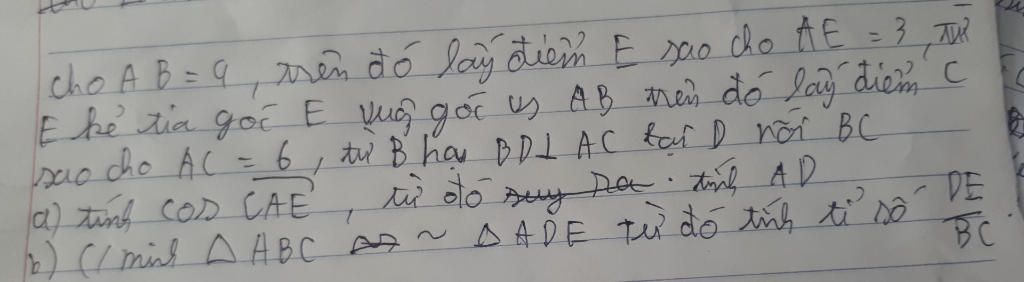 cho AB = 9, trên đó lấy điểm E sao cho AE = 3, từ
E kẻ tia gốc E vuông góc vs AB trên đó lấy điểm C
sao cho AC = 6, từ B hạ BD ⊥ AC tại D nối BC
a) tính cos CAE, từ đó suy ra. tính AD
b) C/minh △ ABC ~ △ ADE từ đó tính tỉ số DE/BC.